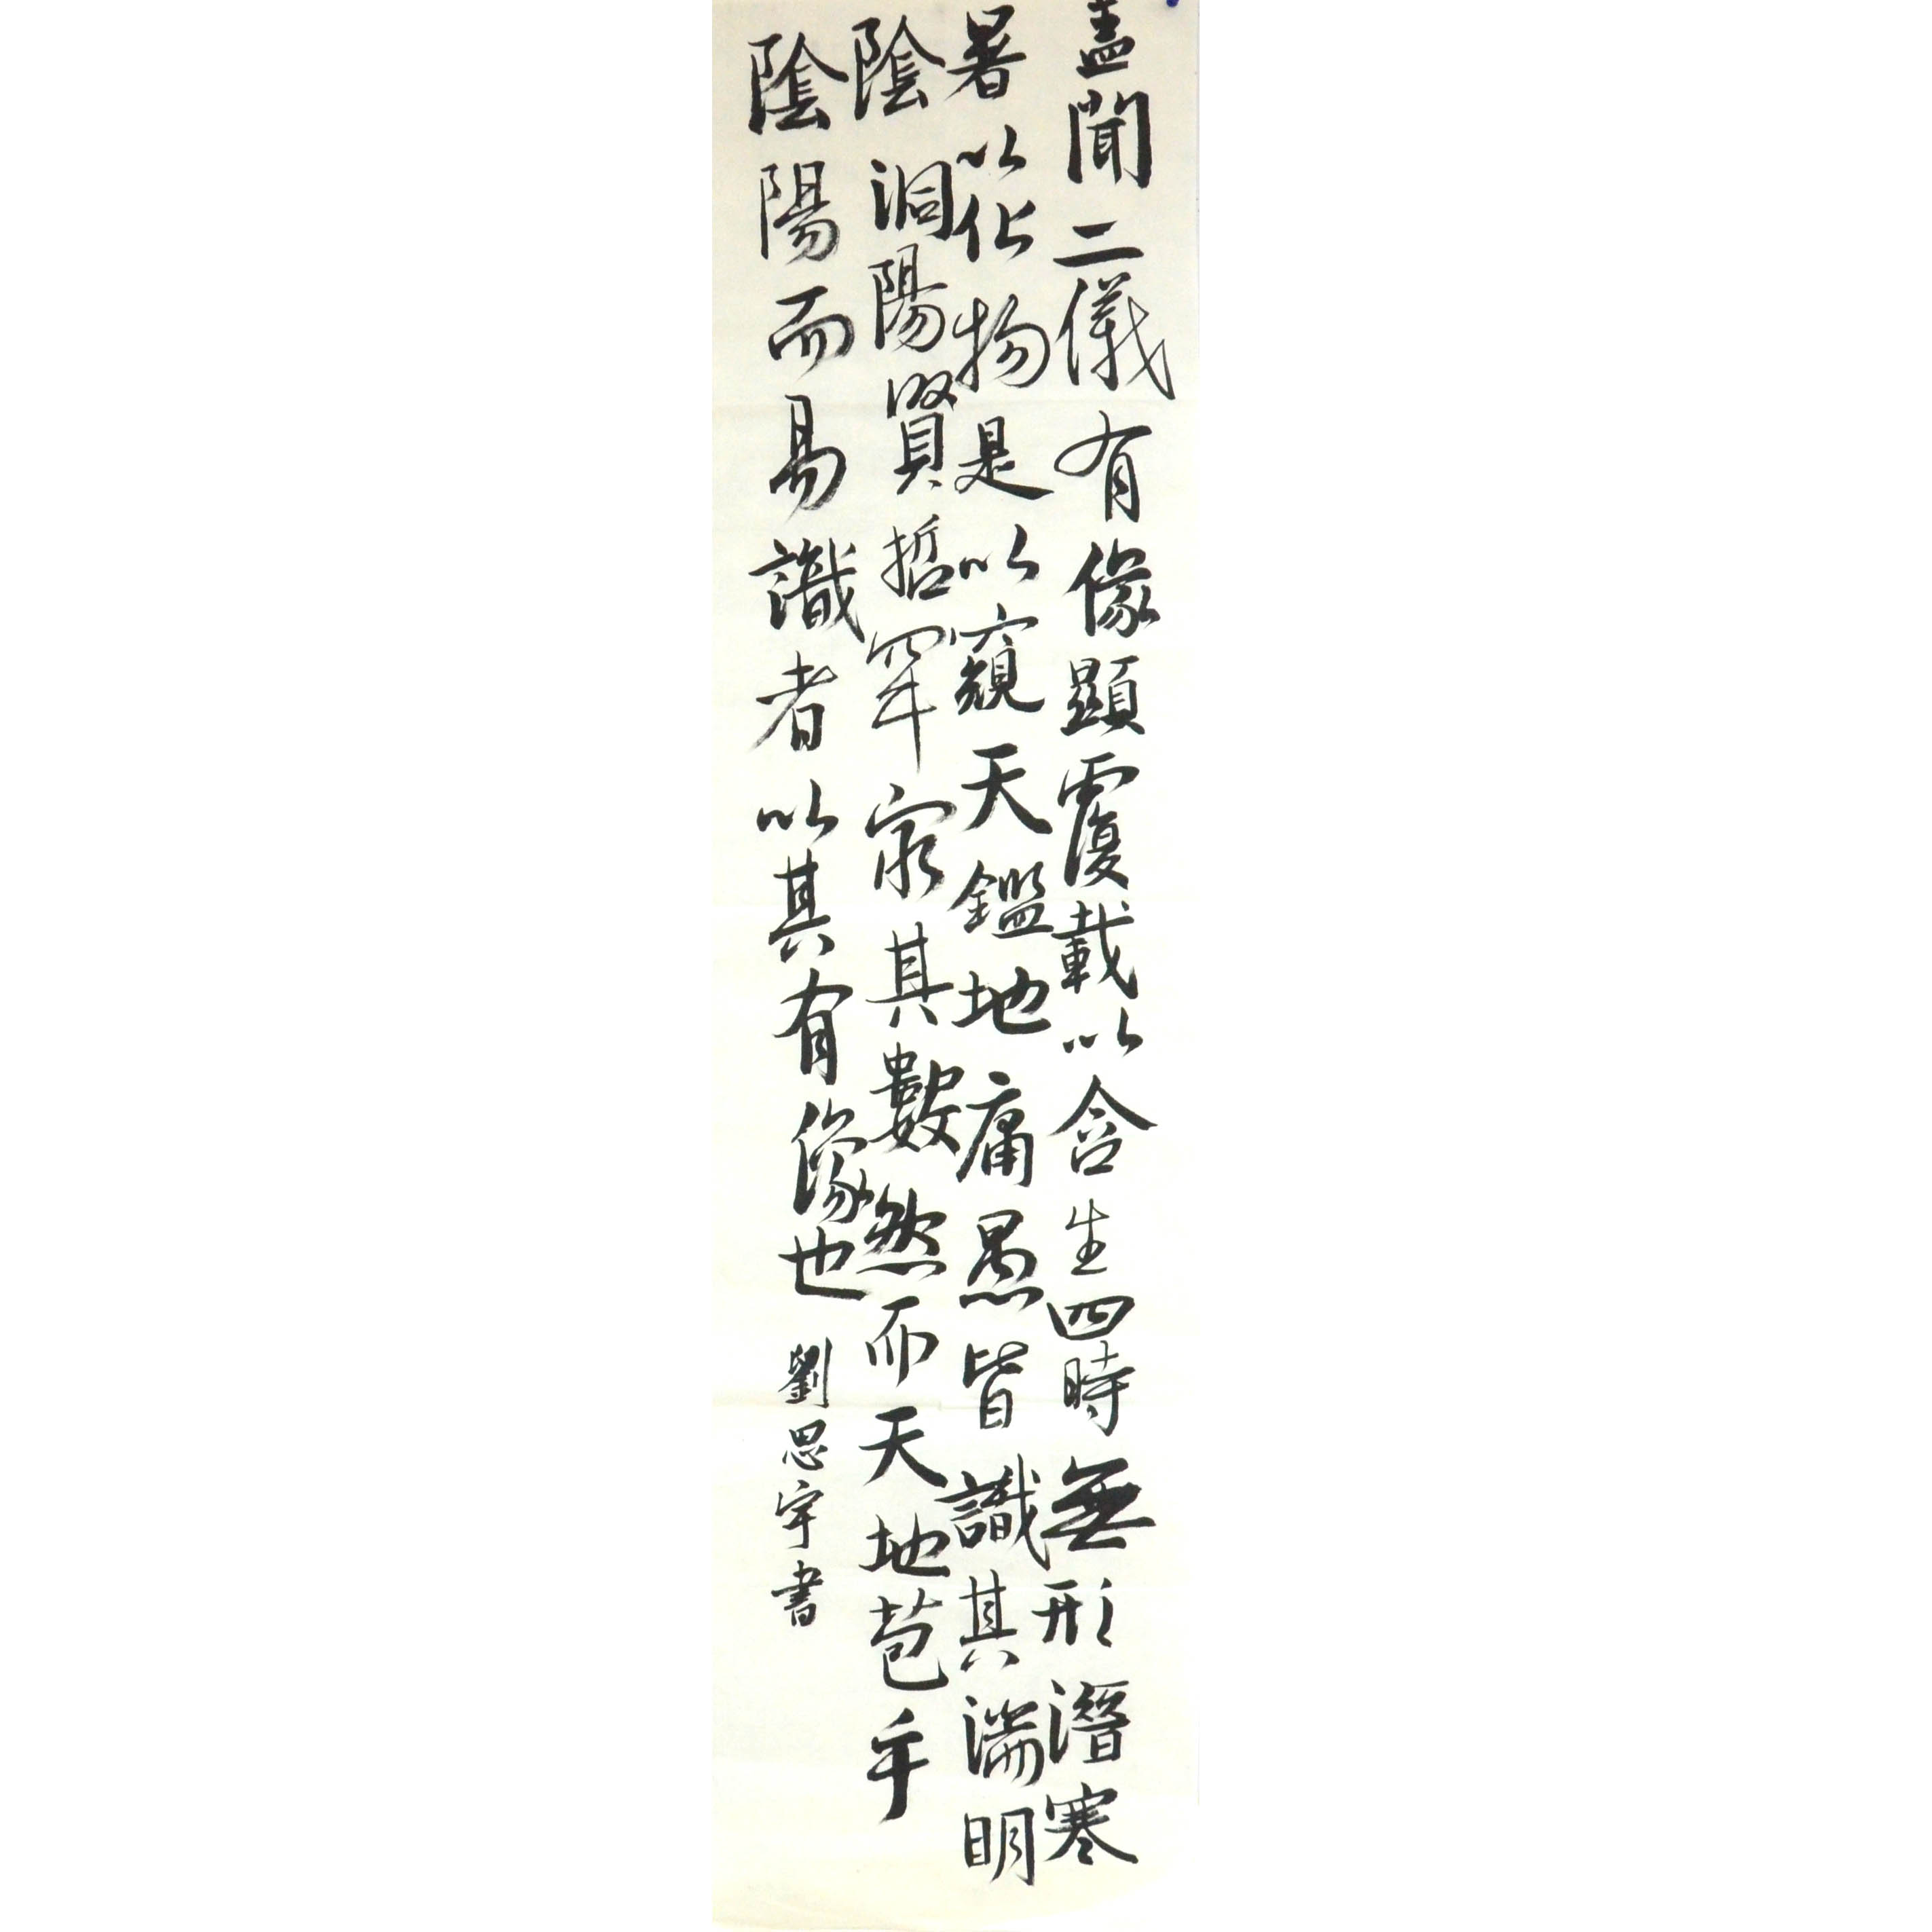 盖聞二儀有像顯覆載以含生四時無形潛寒
暑以化物是以窺天鑑地庸愚皆識其端明
陰洞陽賢哲罕窮其數然而天地苞乎
陰陽而易識者以其有像也
劉思宇書